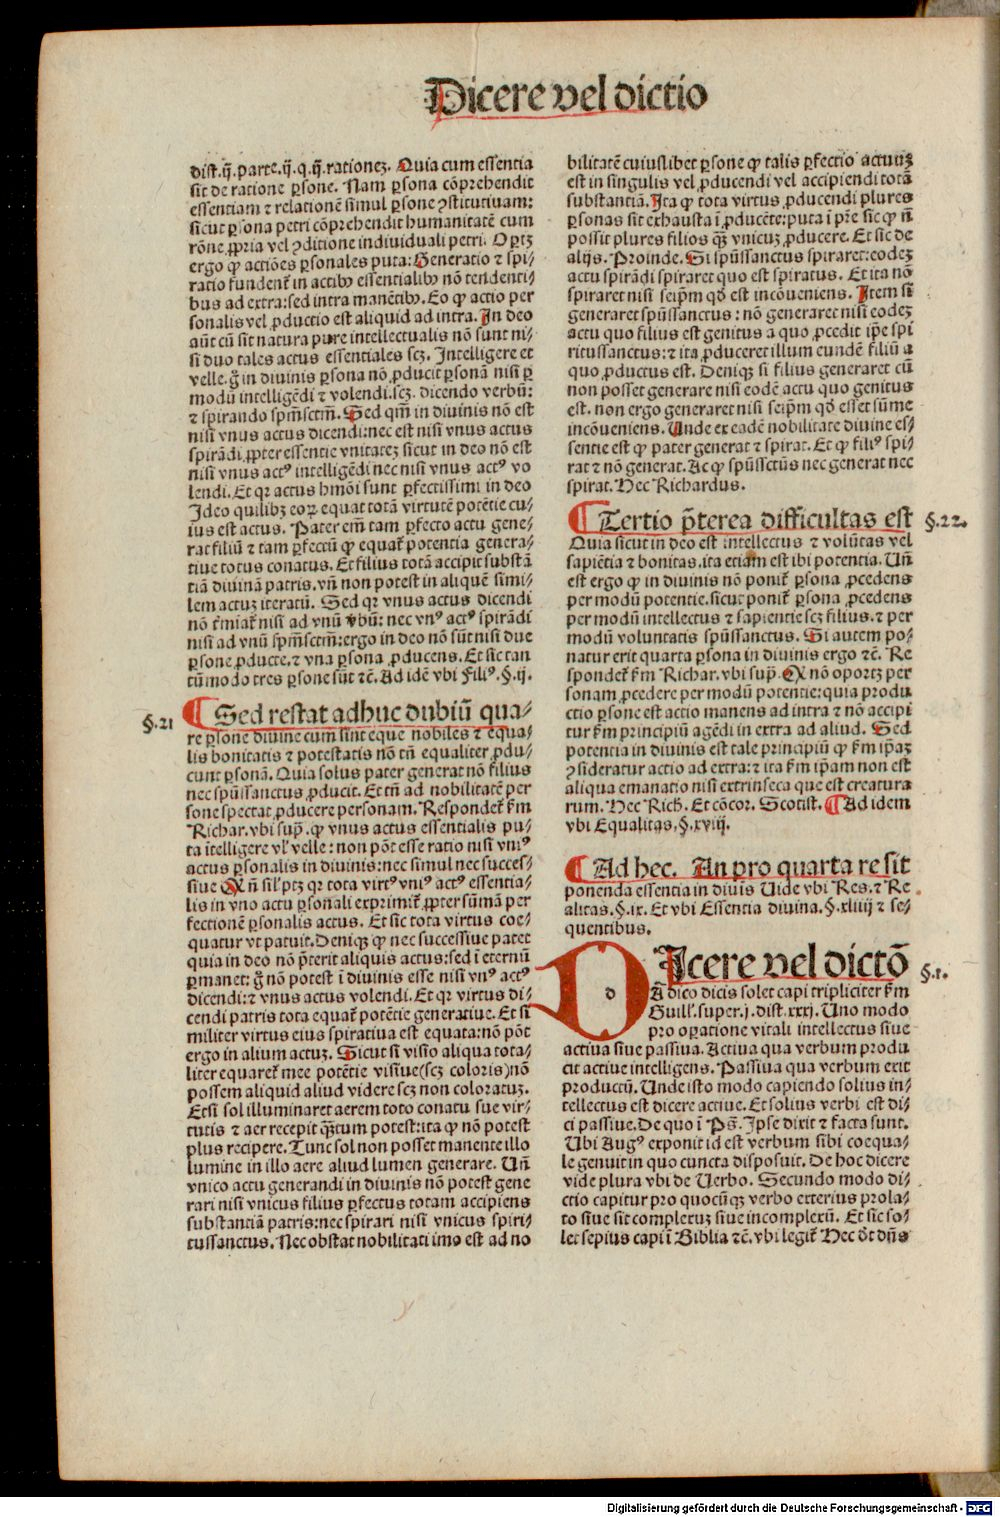 Dicere vel dictio
dist.ij.parte.ij.q.ij.rationez. Quia cum essentia
sit de ratione ꝑsone. Nam ꝑsona cõprehendit
essentiam ⁊ relationẽ simul ꝑsone ꝯstitutiuam:
sicut ꝑsona petri cõprehendit humanitatẽ cum
rõne ꝓpria vel ꝯditione indiuiduali petri. Oꝑtz
ergo ꝙ actiões ꝑsonales puta: Generatio ⁊ spi/
ratio fundent᷑ in actibꝰ essentialibꝰ nõ tendenti/
bus ad extra: sed intra manẽtibꝰ. Eo ꝙ actio per
sonalis vel ꝓductio est aliquid ad intra. In deo
aũt cũ sit natura pure intellectualis nõ sunt ni/
si duo tales actus essentiales scz. Intelligere et
velle. g̃ in diuinis ꝑsona nõ ꝓducit ꝑsonã nisi ꝑ
modũ intelligẽdi ⁊ volendi.scz. dicendo verbũ:
⁊ spirando spm̃sctm̃. Sed qm̃ in diuinis nõ est
nisi vnus actus dicendi: nec est nisi vnus actus
spirãdi ꝓpter essentie vnitatez sicut in deo nõ est
nisi vnus actꝰ intelligẽdi nec nisi vnus actꝰ vo
lendi. Et qꝛ actus hmõi sunt ꝑfectissimi in deo
Ideo quilibz eoꝝ equat totã virtutẽ potẽtie cu/
ius est actus. Pater em̃ tam ꝑfecto actu gene/
rat filiũ ⁊ tam ꝑfectũ ꝙ equat᷑ potentia genera/
tiue totus conatus. Et filius totã accipit substã
tiã diuinã patris. vñ non potest in aliquẽ simi/
lem actuz iteratũ. Sed qꝛ vnus actus dicendi
nõ t᷑miat᷑ nisi ad vnũ v̉bũ: nec vnꝰ actꝰ spirãdi
nisi ad vnũ spm̃sctm̃: ergo in deo nõ sũt nisi due
ꝑsone ꝓducte. ⁊ vna ꝑsona ꝓducens. Et sic tan
tũmodo tres ꝑsone sũt ⁊c̃. Ad idẽ vbi Filiꝰ. §.ij.
§.21
¶ Sed restat adhuc dubiũ qua/
re ꝑsone diuine cum sint eque nobiles ⁊ equa/
lis bonitatis ⁊ potestatis nõ tñ equaliter ꝓdu/
cunt ꝑsonã. Quia solus pater generat nõ filius
nec spũssanctus ꝓducit. Et tñ ad nobilitatẽ per
sone spectat ꝓducere personam. Respondet᷑ ẜm
Richar. vbi sup̃. ꝙ vnus actus essentialis pu/
ta ĩtelligere vl̓ velle: non põt esse ratio nisi vniꝰ
actus ꝑsonalis in diuinis: nec simul nec succes/
siue Qñ sil̓ ptz qꝛ tota virtꝰ vniꝰ actꝰ essentia/
lis in vno actu ꝑsonali exprimit᷑ ꝓpter sũmã per
fectionẽ ꝑsonalis actus. Et sic tota virtus coe/
quatur vt patuit. Deniqꝫ ꝙ nec successiue patet
quia in deo nõ p̃terit aliquis actus: sed ĩ eternũ
ꝑmanet: g̃ nõ potest ĩ diuinis esse nisi vnꝰ actꝰ
dicendi: ⁊ vnus actus volendi. Et qꝛ virtus di/
cendi patris tota equat᷑ potẽtie generatiue. Et si
militer virtus eius spiratiua est equata: nõ põt
ergo in alium actuz. Sicut si visio aliqua tota/
liter equaret᷑ mee potẽtie visiue (scz coloris) nõ
possem aliquid aliud videre scz non coloratuz.
Et si sol illuminaret aerem toto conatu sue vir/
tutis ⁊ aer recepit qꝫtum potest: ita ꝙ nõ potest
plus recipere. Tunc sol non posset manente illo
lumine in illo aere aliud lumen generare. Uñ
vnico actu generandi in diuinis nõ potest gene
rari nisi vnicus filius ꝑfectus totam accipiens
substantiã patris: nec spirari nisi vnicus spiri/
tussanctus. Nec obstat nobilitati imo est ad no
bilitatẽ cuiuslibet ꝑsone ꝙ talis ꝑfectio actuuz
est in singulis vel ꝓducendi vel accipiendi totã
substantiã. Ita ꝙ tota virtus ꝓducendi plures
ꝑsonas sit exhausta ĩ ꝓducẽte: puta ĩ pr̃e sic ꝙ ñ
possit plures filios qꝫ vnicuz ꝓducere. Et sic de
alijs. Proinde. Si spũssanctus spiraret: eodez
actu spirãdi spiraret quo est spiratus. Et ita nõ
spiraret nisi seip̃m qd̓ est incõueniens. Item si
generaret spũssanctus: nõ generaret nisi eodez
actu quo filius est genitus a quo ꝓcedit ip̃e spi
ritussanctus: ⁊ ita ꝓduceret illum eundẽ filiũ a
quo ꝓductus est. Deniqꝫ si filius generaret cũ
non posset generare nisi eodẽ actu quo genitus
est. non ergo generaret nisi seip̃m qd̓ esset sũme
incõueniens. Unde ex eadẽ nobilitate diuine es/
sentie est ꝙ pater generat ⁊ spirat. Et ꝙ filiꝰ spi/
rat ⁊ nõ generat. Ac ꝙ spũssctũs nec generat nec
spirat. Hec Richardus.
¶ Tertio p̃terea difficultas est
§.22.
Quia sicut in deo est intellectus ⁊ volũtas vel
sapiẽtia ⁊ bonitas. ita etiam est ibi potentia. Uñ
est ergo ꝙ in diuinis nõ ponit᷑ ꝑsona ꝓcedens
per modũ potentie. sicut ponit᷑ ꝑsona ꝓcedens
per modũ intellectus ⁊ sapientie scz filius. ⁊ per
modũ voluntatis spũssanctus. Si autem po/
natur erit quarta ꝑsona in diuinis ergo ⁊c̃. Re
spondet᷑ ẜm Richar. vbi sup̃. Q nõ oportz per
sonam ꝓcedere per modũ potentie: quia produ
ctio ꝑsone est actio manens ad intra ⁊ nõ accipi
tur ẜm principiũ agẽdi in extra ad aliud. Sed
potentia in diuinis est tale principiũ ꝙ ẜm ip̃az
ꝯsideratur actio ad extra: ⁊ ita ẜm ip̃am non est
aliqua emanatio nisi extrinseca que est creatura
rum. Hec Rich. Et cõcor. Scotist. ¶ Ad idem
vbi Equalitas, §.xviij.
¶ Ad hec. An pro quarta re sit
ponenda essentia in diuis Uide vbi Res. ⁊ Re
alitas. §.ix. Et vbi Essentia diuina. §.xliiij ⁊ se/
quentibus.
DIcere vel dictõ
§.1.
Ã dico dicis solet capi tripliciter ẜm
Guill̓. super.j.dist.xxxj. Uno modo
pro oꝑatione vitali intellectus siue
actiua siue passiua. Actiua qua verbum produ
cit actiue intelligens. Passiua qua verbum exit
productũ. Unde isto modo capiendo solius in/
tellectus est dicere actiue. Et solius verbi est di/
ci passiue. De quo ĩ Ps̃. Ipse dixit ⁊ facta sunt.
Ubi Augꝰ exponit id est verbum sibi coequa/
le genuit in quo cuncta disposuit. De hoc dicere
vide plura vbi de Uerbo. Secundo modo di/
ctio capitur pro quocũqꝫ verbo exterius prola/
to siue sit complexuz siue incomplexũ. Et sic so/
let sepius capi ĩ Biblia ⁊c̃. vbi legit᷑ Hec dt̓ dñs
Digitalisierung gefördert durch die Deutsche Forschungsgemeinschaft - DFG